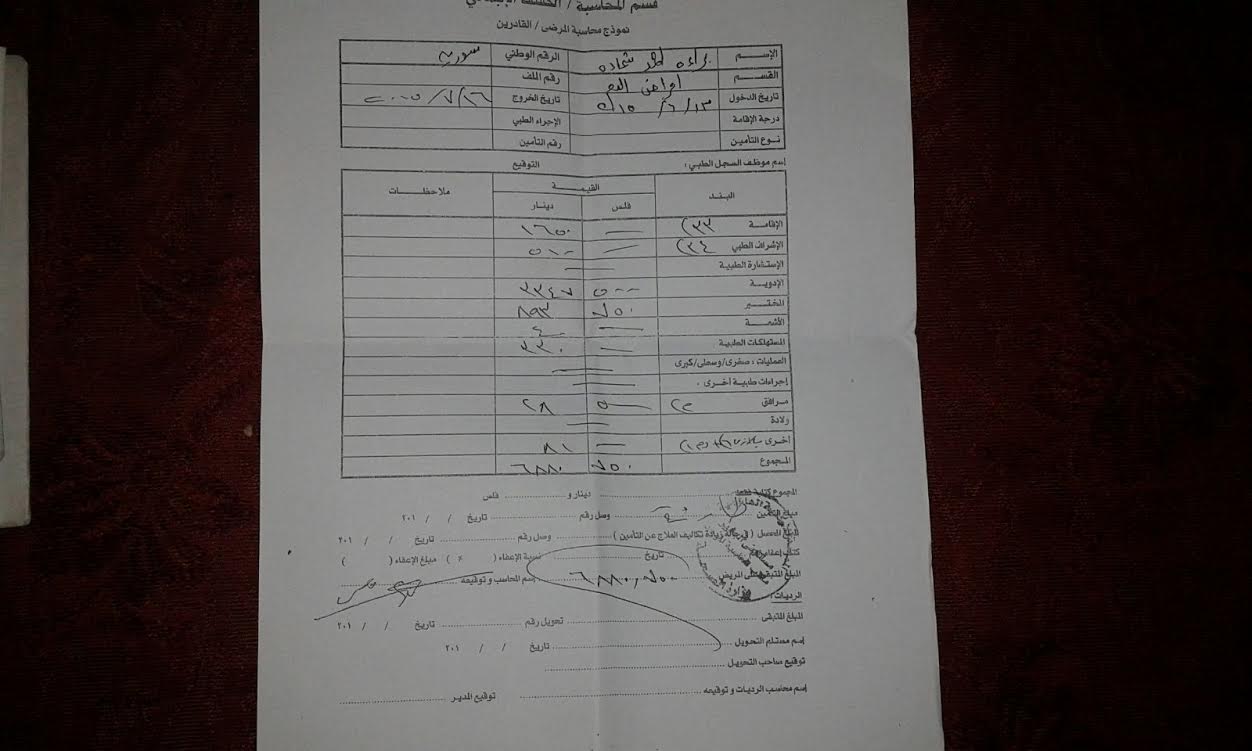 قسم المحاسبة /
نموذج محاسبة المرضى / القادرين
الإسم براءه شحاده الرقم الوطني سورية
القسم امراض الدم رقم الملف
تاريخ الدخول تاريخ الخروج
درجة الإقامة الإجراء الطبي
نوع التأمين رقم التأمين
إسم موظف السجل الطبي : التوقيع
البند القيمة ملاحظات
فلس دينار
الإقامة (٣٣ — ١٦٥٠
الإشراف الطبي (٣٤ — ٥١٠
الإستشارة الطبية —
الأدوية ٥٠٠ ٣٣٤٧
المختبر ٧٥٠ ٨٩٣
الأشعة — ٤٠
المستهلكات الطبية — ٣٣٠
العمليات : صغرى/وسطى/كبرى —
إجراءات طبية أخرى . —
مرافق ٢٨
ولادة —
أخرى — ٨١
المجموع ٧٥٠ ٦٨٨٠
المجموع كتابة فقط ........ دينار و ........ فلس
مبلغ التأمين ........ وصل رقم ........ تاريخ / / ٢٠١
المبلغ المحصل ( في حالة زيادة تكاليف العلاج عن التأمين ) ........ وصل رقم ........ تاريخ / / ٢٠١
كتاب إعفاء رقم ........ تاريخ ........ نسبة الإعفاء ( ٪ ) مبلغ الإعفاء ( )
المبلغ المتبقي على المريض ٦٨٨٠,٧٥٠ إسم المحاسب و توقيعه ........
الرديات :
المبلغ المتبقى ........ تحويل رقم ........ تاريخ / / ٢٠١
إسم مستلم التحويل ........ تاريخ / / ٢٠١
توقيع صاحب التحويل ........
إسم محاسب الرديات و توقيعه ........ توقيع المدير ........